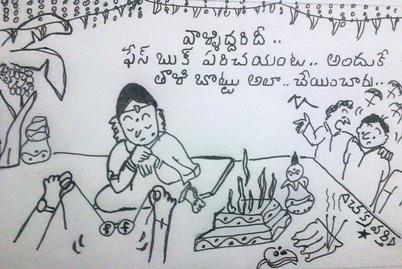 వాళ్ళిద్దరిదీ..
ఫేస్ బుక్ పరిచయంట.. అందుకే
తాళి బొట్టు అలా.. చేయించారు..
f f